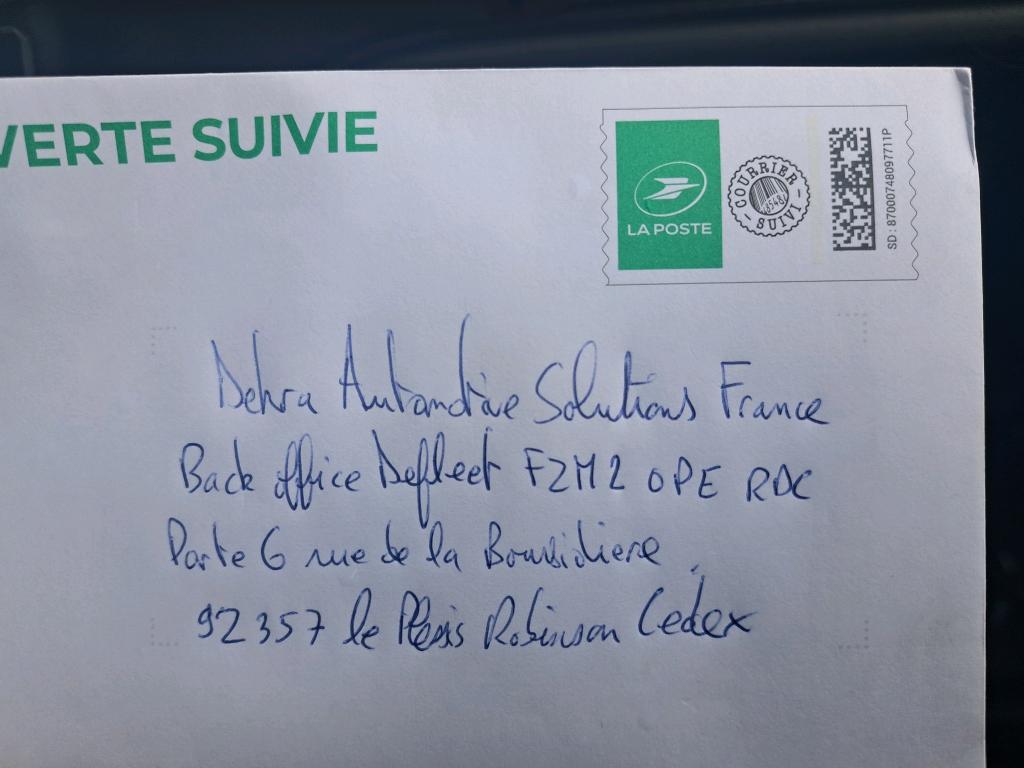 VERTE SUIVIE
LA POSTE
COURRIER SUIVI
SD : 87000748097711P
Dekra Automotive Solutions France
Back office Defleet FZM2 OPE RDC
Porte 6 rue de la Boursidiere
92357 le Plessis Robinson Cedex